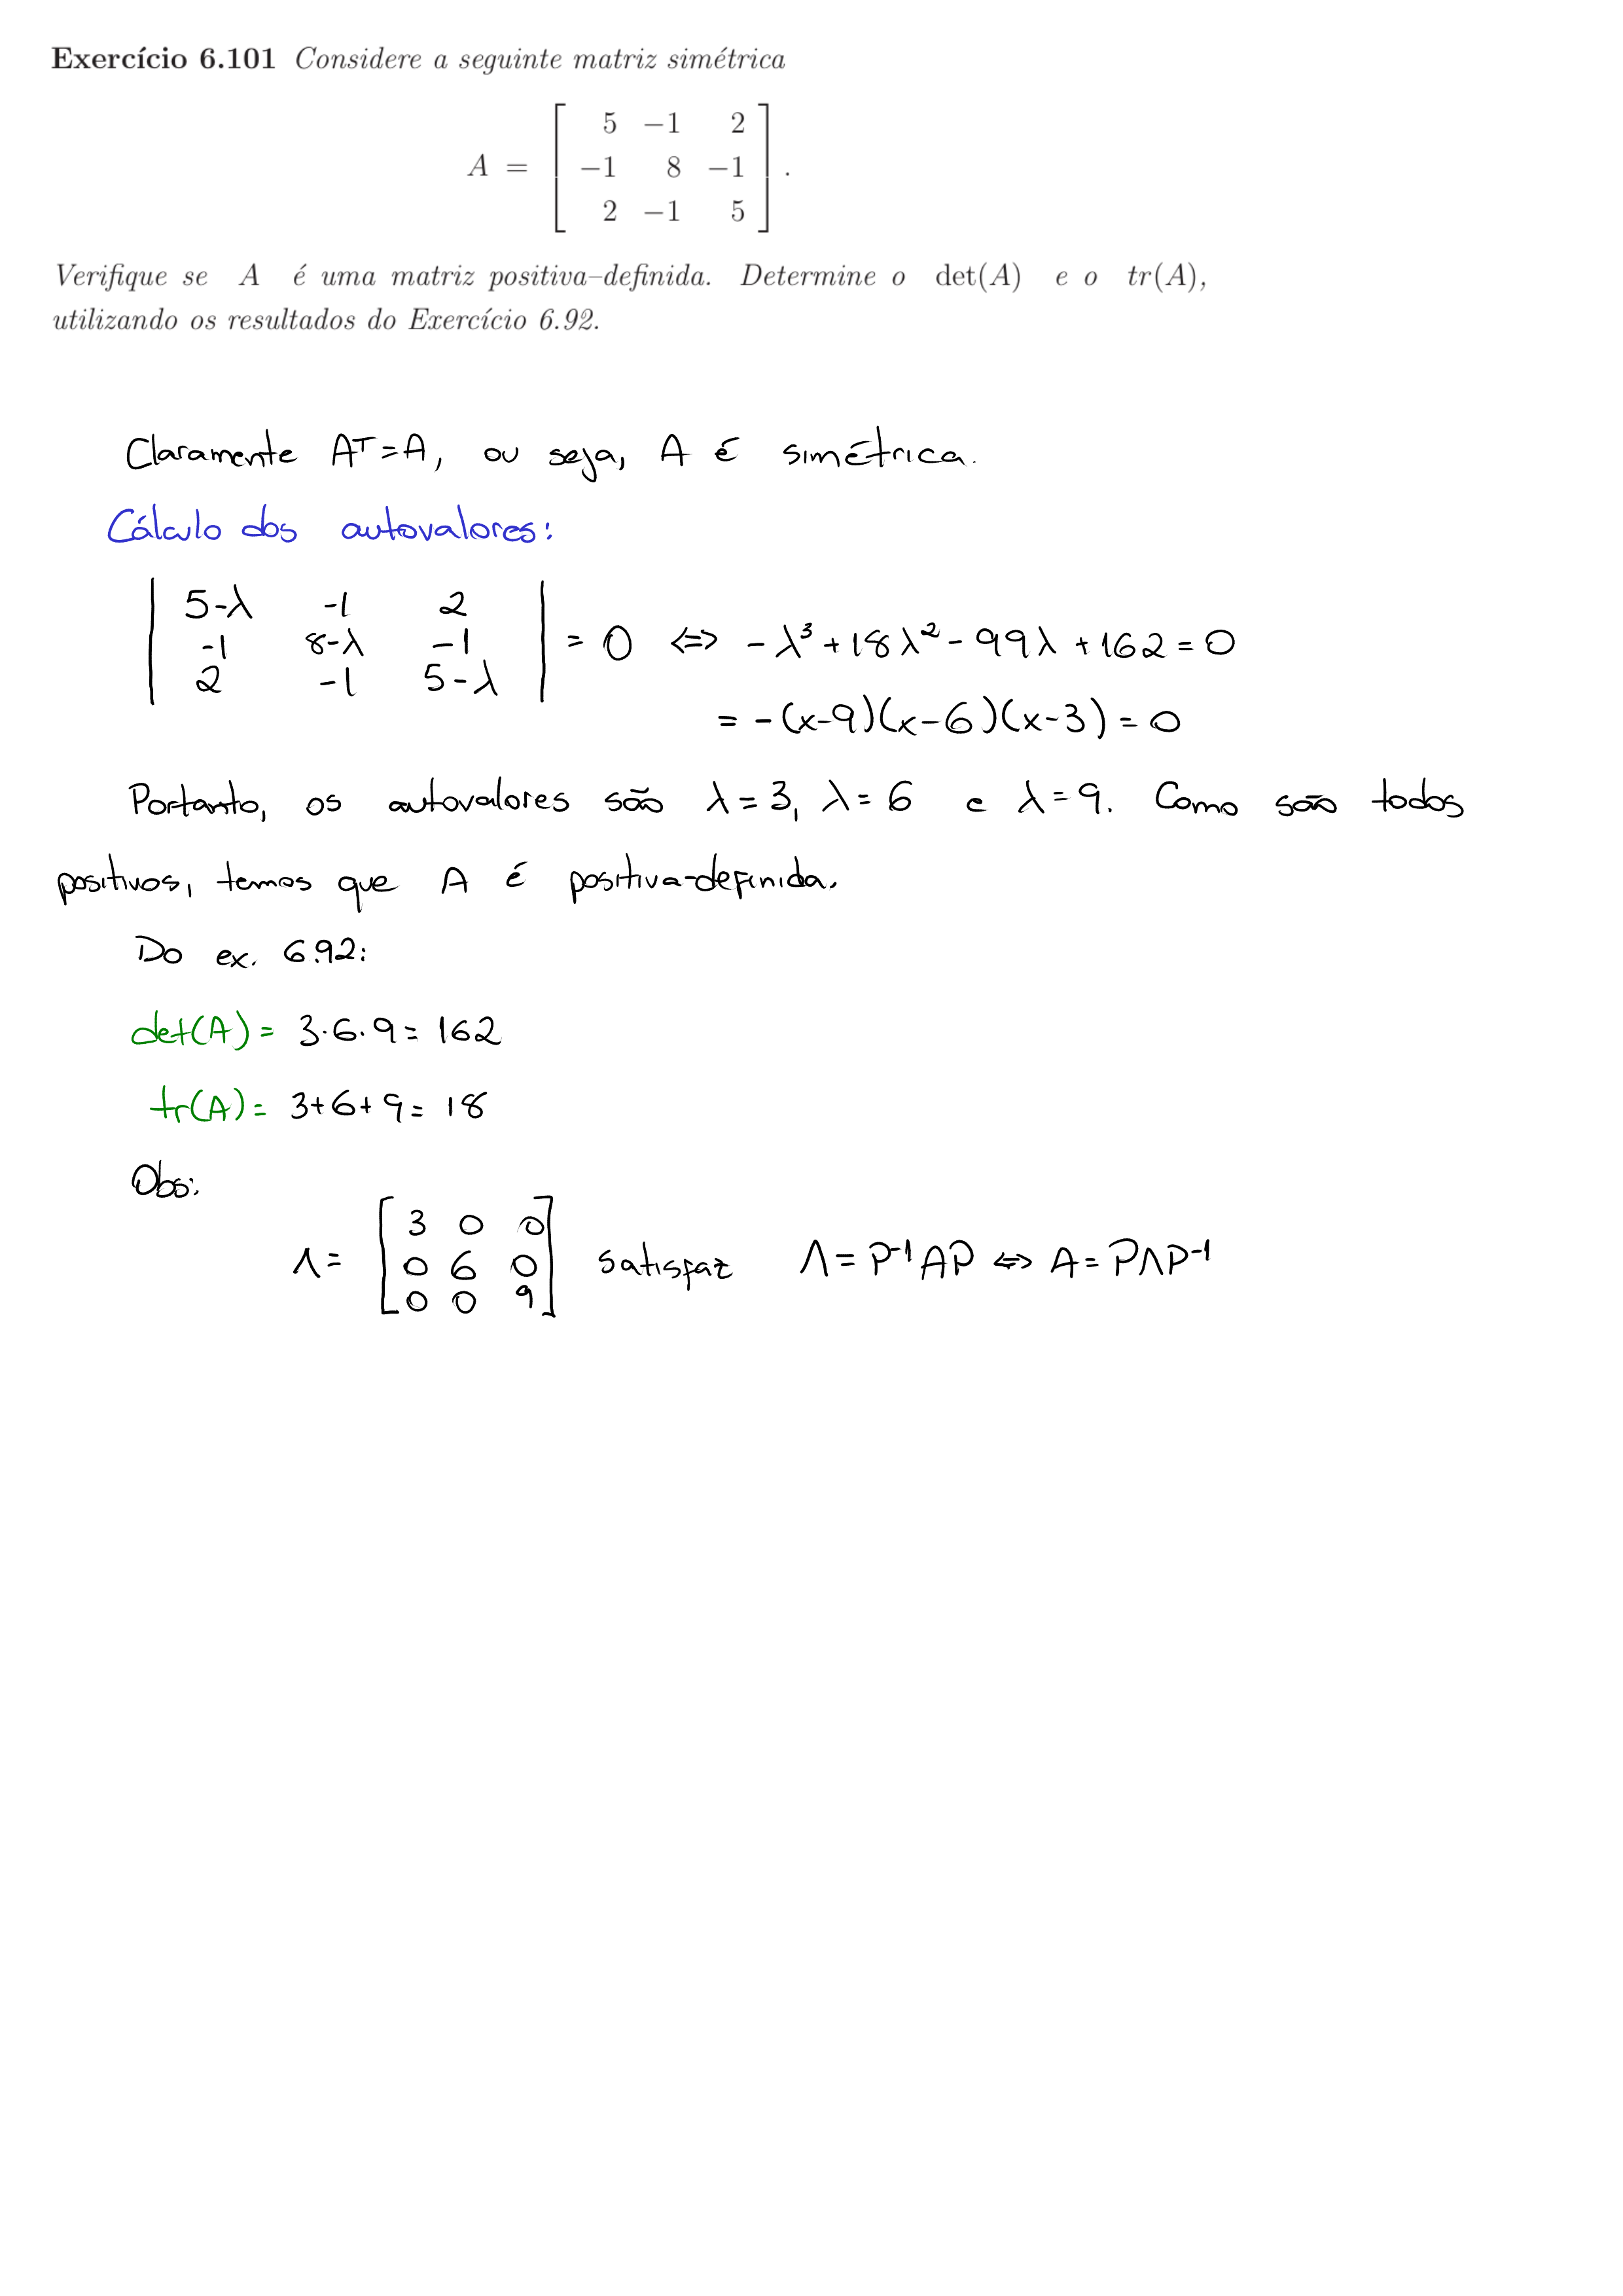 Exercício 6.101 Considere a seguinte matriz simétrica
A = [ 5 −1 2
−1 8 −1
2 −1 5 ] .
Verifique se A é uma matriz positiva–definida. Determine o det(A) e o tr(A),
utilizando os resultados do Exercício 6.92.
Claramente Aᵀ=A, ou seja, A é simétrica.
Cálculo dos autovalores:
| 5-λ -1 2 |
| -1 8-λ -1 | = 0 ⇔ -λ³+18λ²-99λ+162=0
| 2 -1 5-λ |
= -(x-9)(x-6)(x-3)=0
Portanto, os autovalores são λ=3, λ=6 e λ=9. Como são todos
positivos, temos que A é positiva-definida.
Do ex. 6.92:
det(A)= 3·6·9=162
tr(A)= 3+6+9=18
Obs:
[ 3 0 0 ]
Λ= [ 0 6 0 ] satisfaz Λ=P⁻¹AP ⇔ A=PΛP⁻¹
[ 0 0 9 ]